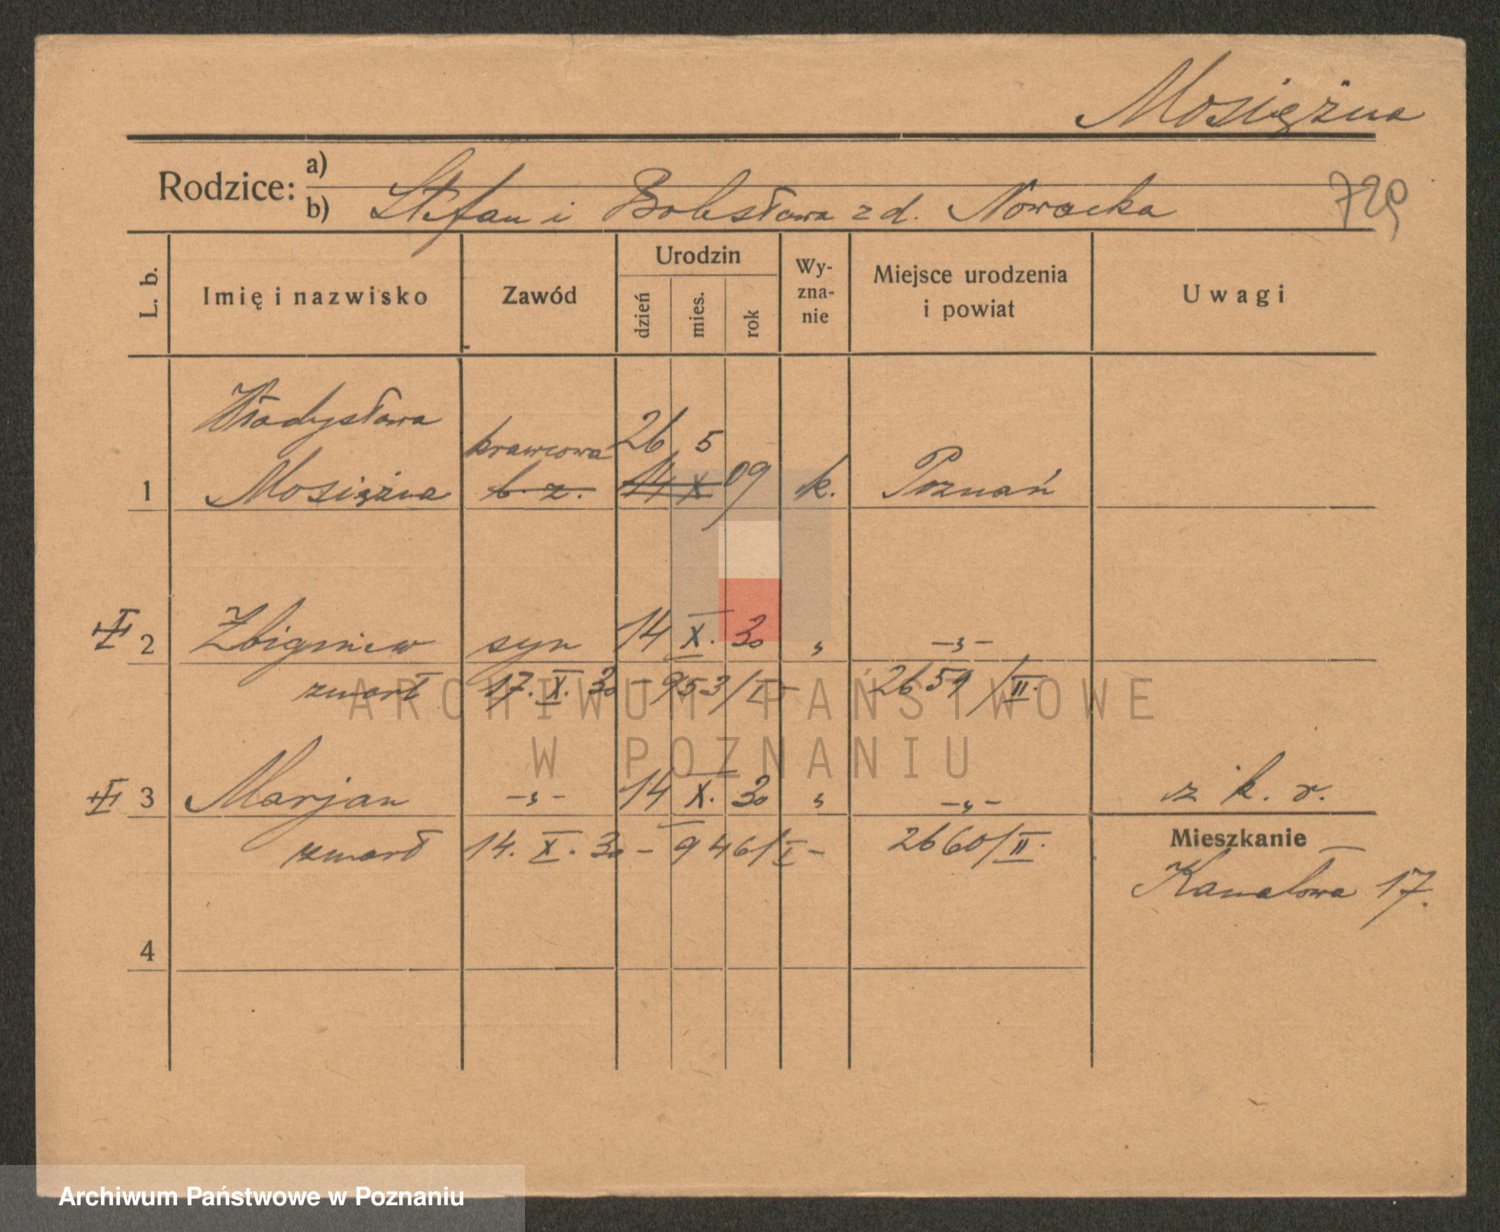 Mosiężna
Rodzice: a)
b) Stefan i Bolesława z d. Nowacka 729
L. b. Imię i nazwisko Zawód Urodzin dzień mies. rok Wy-zna-nie Miejsce urodzenia i powiat Uwagi
Władysława krawcowa 26 5
1 Mosiężna b. z. 14 X 09 k. Poznań
2 Zbigniew syn 14 X. 30 " -"-
zmarł 17. X. 30 - 953/I - 2659/II.
3 Marjan -"- 14 X. 30 " -"- ż k. r.
zmarł 14. X. 30 - 946/I - 2660/II.
Mieszkanie
Kanałowa 17.
4
ARCHIWUM PAŃSTWOWE
W POZNANIU
Archiwum Państwowe w Poznaniu